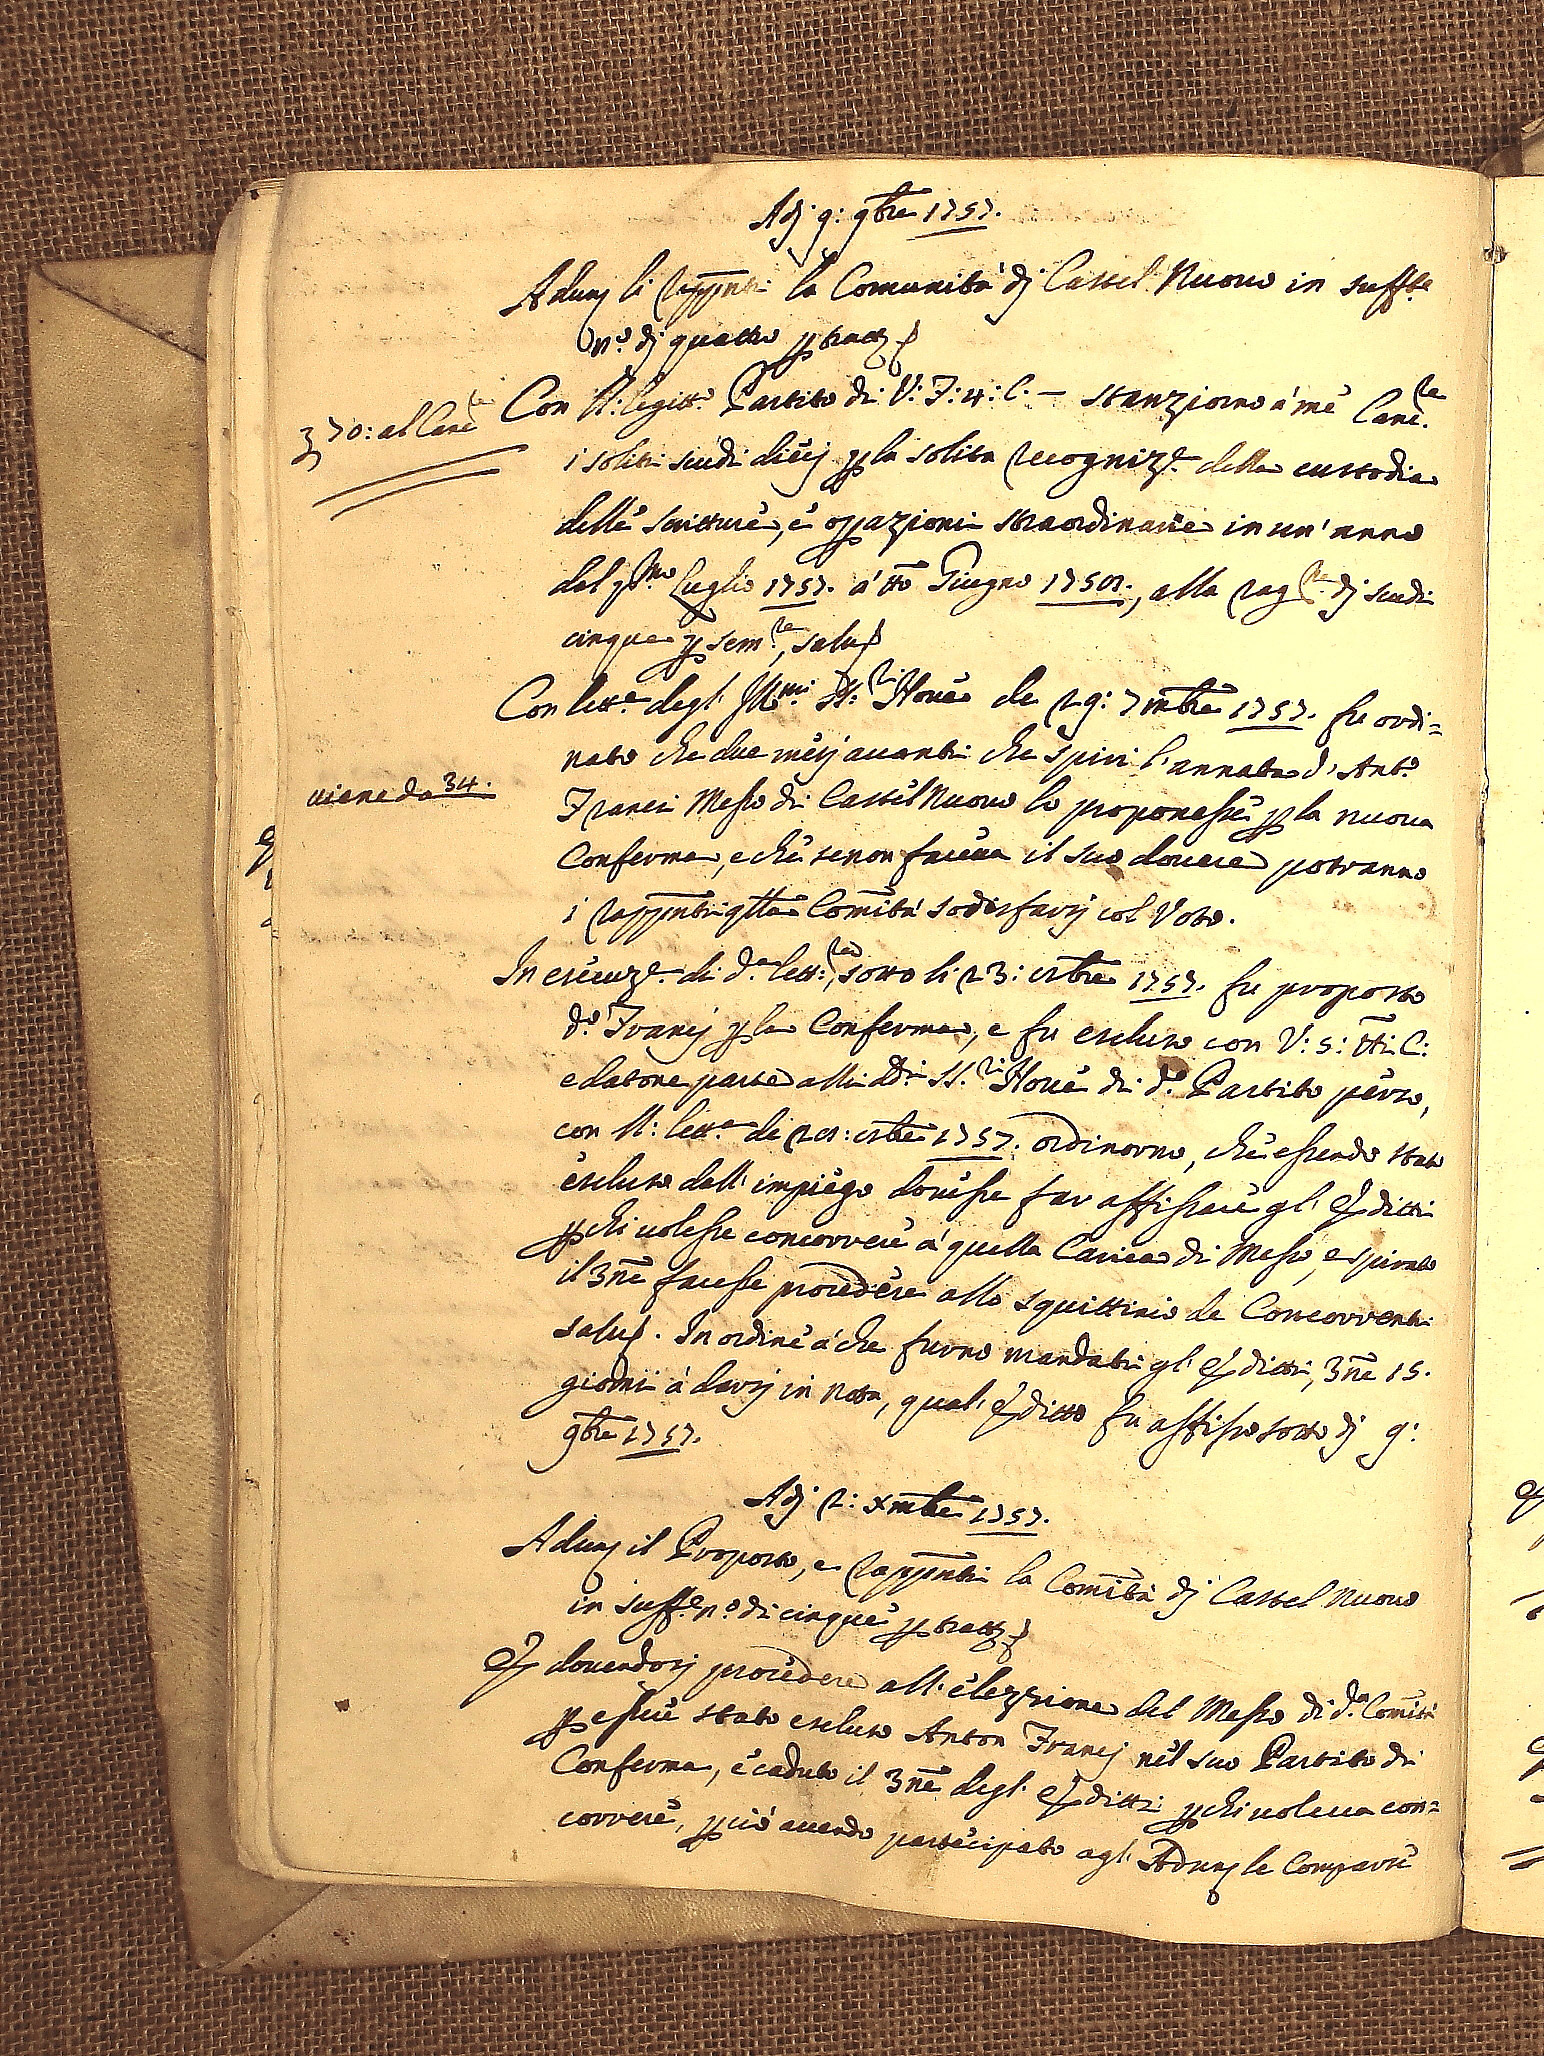 Adj 9: 9bre 1757.
Adunj li Rappnti la Comunità dj Castel Nuovo in suffte
no. dj quatro p trattj
Con ll: legitto. Partito di: V: F: 4: C: — stanziorno à mè Cancre.
70: al Cancre
i soliti scudi diecj p la solita recognize. della custodia
delle scritture, è opazioni straordinarie in un' anno
dal pmo. Luglio 1757. à tto Giugno 1758., alla ragne. dj scudi
cinque p semre., salu
Con lettra. degl' Illmi. SS:ri Nove de 29: 7mbre 1757. fu ordi=
nato che due mesj avanti che spiri l'annata d' Anto.
viene da 34.
Francj Messo di Castel Nuovo lo proponesse p la nuova
Conferma, e che se non faceva il suo dovere potranno
i rappnti qlla Comità sodisfarsj col Voto.
In esecuze. di da. lettra, sotto li 23: 8bre 1757. fu proposto
do. Francj p la Conferma, e fu escluso con V: 5: tti C:
e datone parte alli ddi SS.ri Nove di do. Partito perso,
con ll: lettra. de 28: 8bre 1757. ordinorno, chè essendo stato
escluso dall' impiego dovesse far affissare gl' Editti
p chi volesse concorrere à quella Carica di Messo, e spirato
il 3ne facesse procedere allo squittinio de Concorrenti
salu. In ordine à che furno mandati gl' Editti, 3ne 15.
giorni à darsj in nota, qual' Editto fu affisso sotto dj 9:
9bre 1757.
Adj 2: xmbre 1757.
Adunj il Proposto, e rappnti la Comità dj Castel Nuovo
in suffe. no. di cinque p trattj
E dovendosj procedere all' elezzione del Messo di da. Comità
p essere stato escluso Anton Francj nel suo Partito di
Conferma, è caduto il 3ne degl' Editti p chi voleva con=
correre, p ciò avendo partecipato agl' Adunj le Comparse